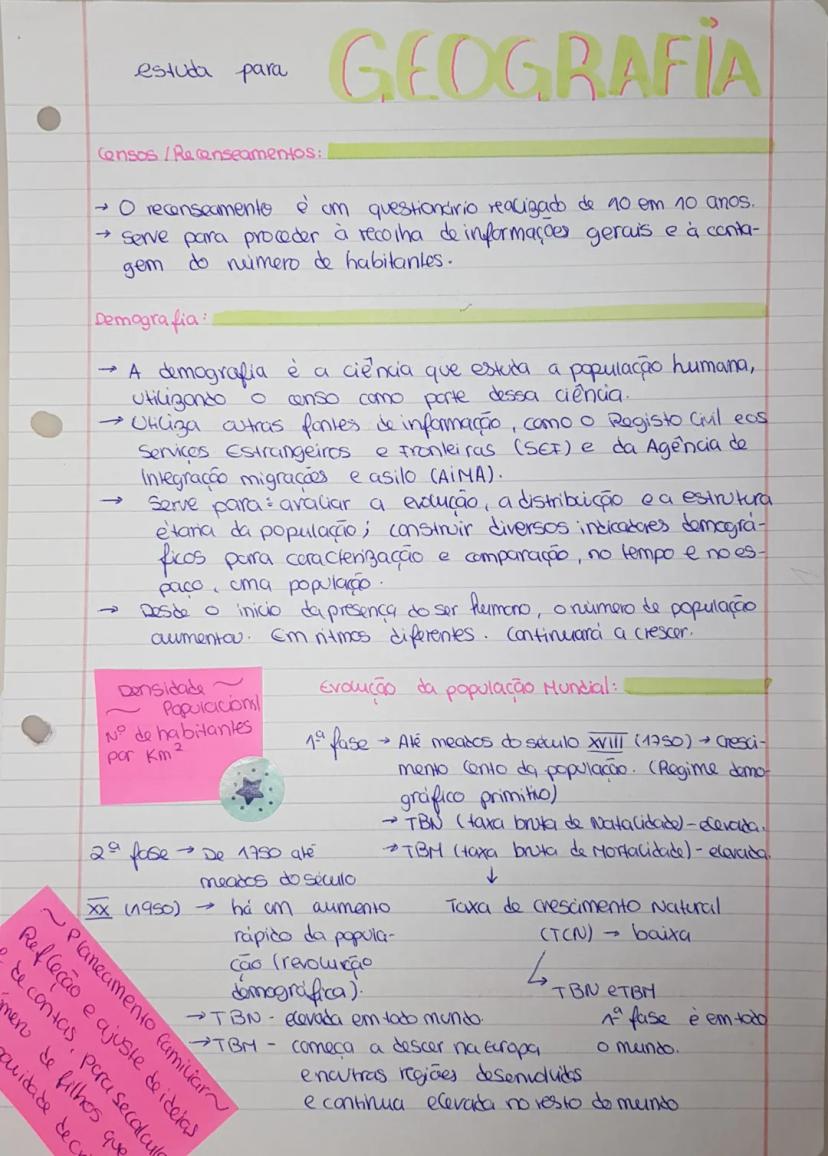 estuda para GEOGRAFIA
Censos / Recenseamentos:
→ O recenseamento é um questionário realizado de 10 em 10 anos.
→ Serve para proceder à recolha de informações gerais e à conta-
gem do número de habitantes.
Demografia:
→ A demografia é a ciência que estuda a população humana,
utilizando o censo como parte dessa ciência.
→ Utiliza outras fontes de informação, como o Registo Civil e os
Serviços Estrangeiros e Fronteiras (SEF) e da Agência de
Integração migrações e asilo (AIMA).
→ Serve para: avaliar a evolução, a distribuição e a estrutura
etária da população; construir diversos indicadores demográ-
ficos para caracterização e comparação, no tempo e no es-
paço, uma população.
→ Desde o inicio da presença do ser humano, o número de população
aumentou. Em ritmos diferentes. Continuará a crescer.
Densidade ~
~ Populacionl
Nº de habitantes
por Km²
Evolução da população Mundial:
1ª fase → Até meados do século XVIII (1750) → Cresci-
mento lento da população. (Regime demo-
gráfico primitivo)
→ TBN (taxa bruta de Natalidade) - elevada.
→ TBM (taxa bruta de Mortalidade) - elevada.
↓
Taxa de crescimento Natural
(TCN) → baixa
↳ TBN e TBM
1ª fase é em todo
o mundo.
2ª fase → De 1750 até
meados do século
XX (1950) → há um aumento
rápido da popula-
ção (revolução
demográfica).
→ TBN - elevada em todo mundo.
→ TBM - começa a descer na Europa
e noutras regiões desenvolvidas
e continua elevada no resto do mundo
~ Planeamento familiar ~
Refleção e ajuste de ideias
e de contas, para se calcula
de filhos que